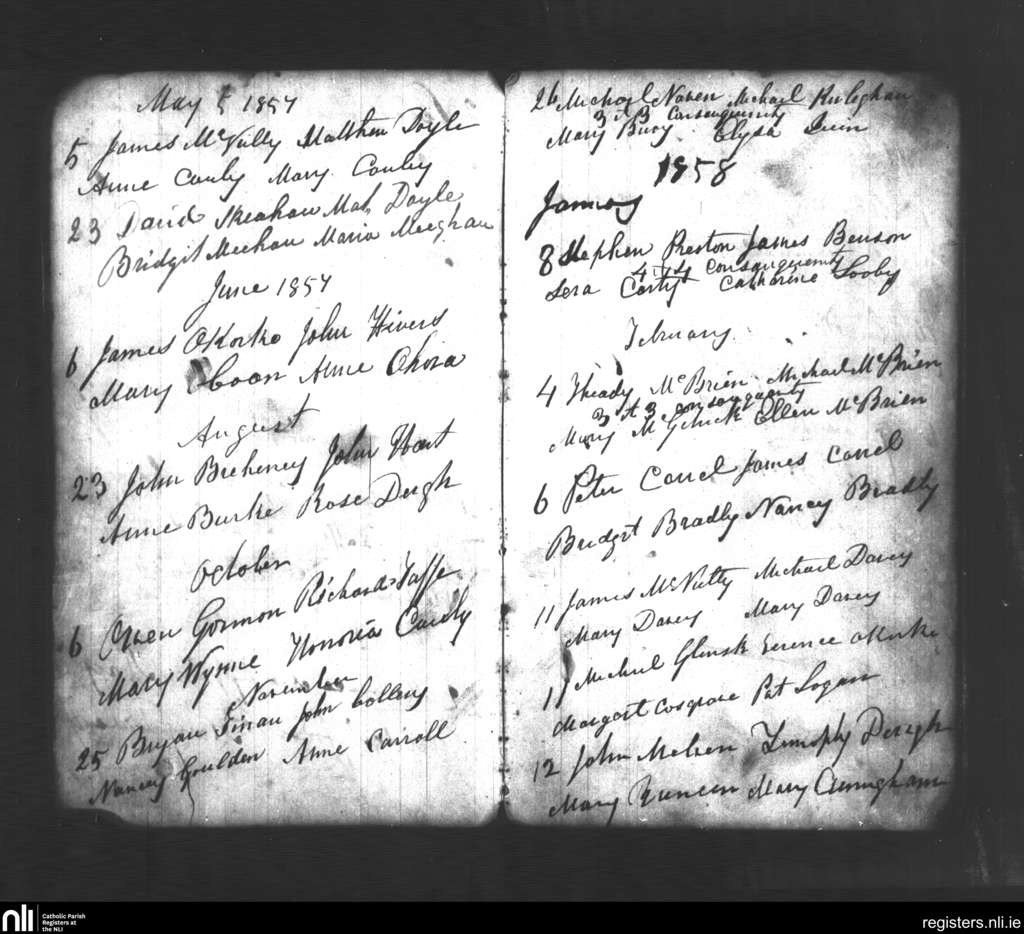 May 5 1857
5 James McNully Matthew Doyle
Anne Cauly Mary Cauley
23 David Mat Doyle
Bridgit Meehan Maria Meeghan
June 1857
6 James O'Korke John Hivers
Mary Anne
August
23 John Breheney John Hart
Anne Burke Rose Dergh
October
6 Owen Gormon Richard Taffe
Mary Wynne Honoria Cauly
November
25 Bryan Finan John Collery
Nancy Goulden Anne Carroll
26 Michael Naren Michael
3 & 3 Consanguinity
Mary
1858
January
8 Stephen Preston James Benson
4 to 4 consanguenity
Sera Carty Catharine Looby
February
4 Thady McBrien Michael McBrien
3 to 3 consanguenity
Mary Ellen McBrien
6 Peter Carrel James Carrel
Bridget Bradly Nancy Bradly
11 James McNulty Michael Davey
Mary Davey Mary Davey
11 Michael O'Korke
Margart Pat Logan
12 John Dergh
Mary Mary Cunigham
nli
Catholic Parish
Registers at
the NLI
registers.nli.ie